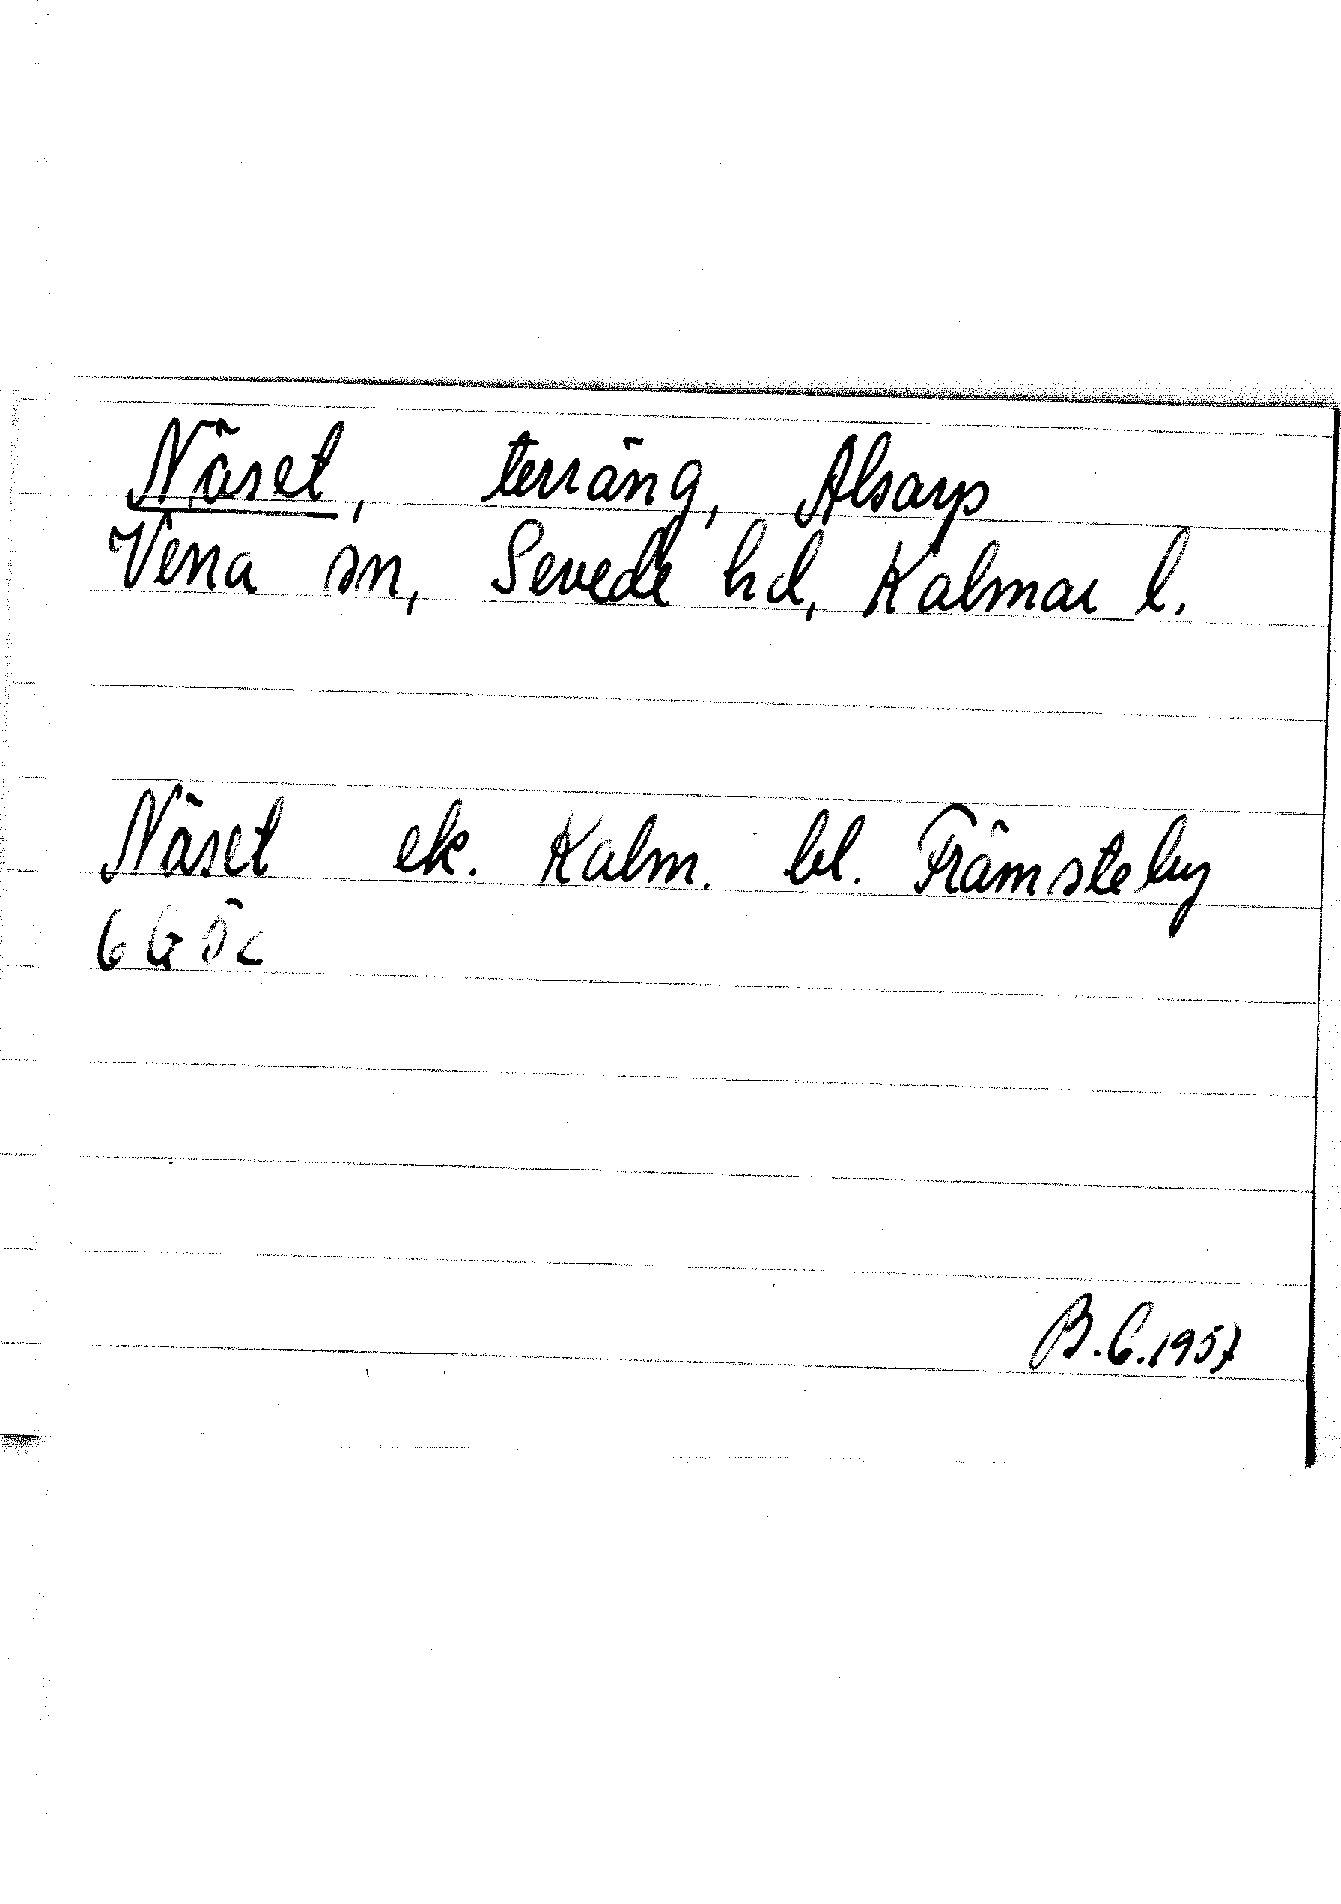 Näset, terräng, Alsarp
Vena sn, Sevede hd, Kalmar l.
Näset ek. Kalm. bl. Främsteby
6 G 5c
B.C.1957